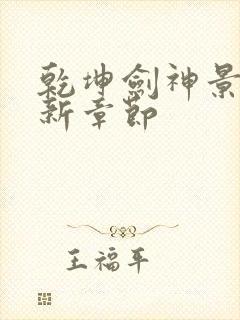 乾坤劍神景
新章節
王福平